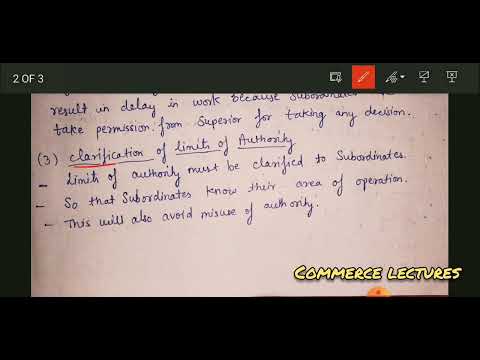 2 OF 3
result in delay in work because Subordinates
take permission from Superior for taking any decision.
(3) Clarification of limits of Authority
- Limits of authority must be clarified to Subordinates.
- So that Subordinates know their area of operation.
- This will also avoid misuse of authority.
COMMERCE LECTURES